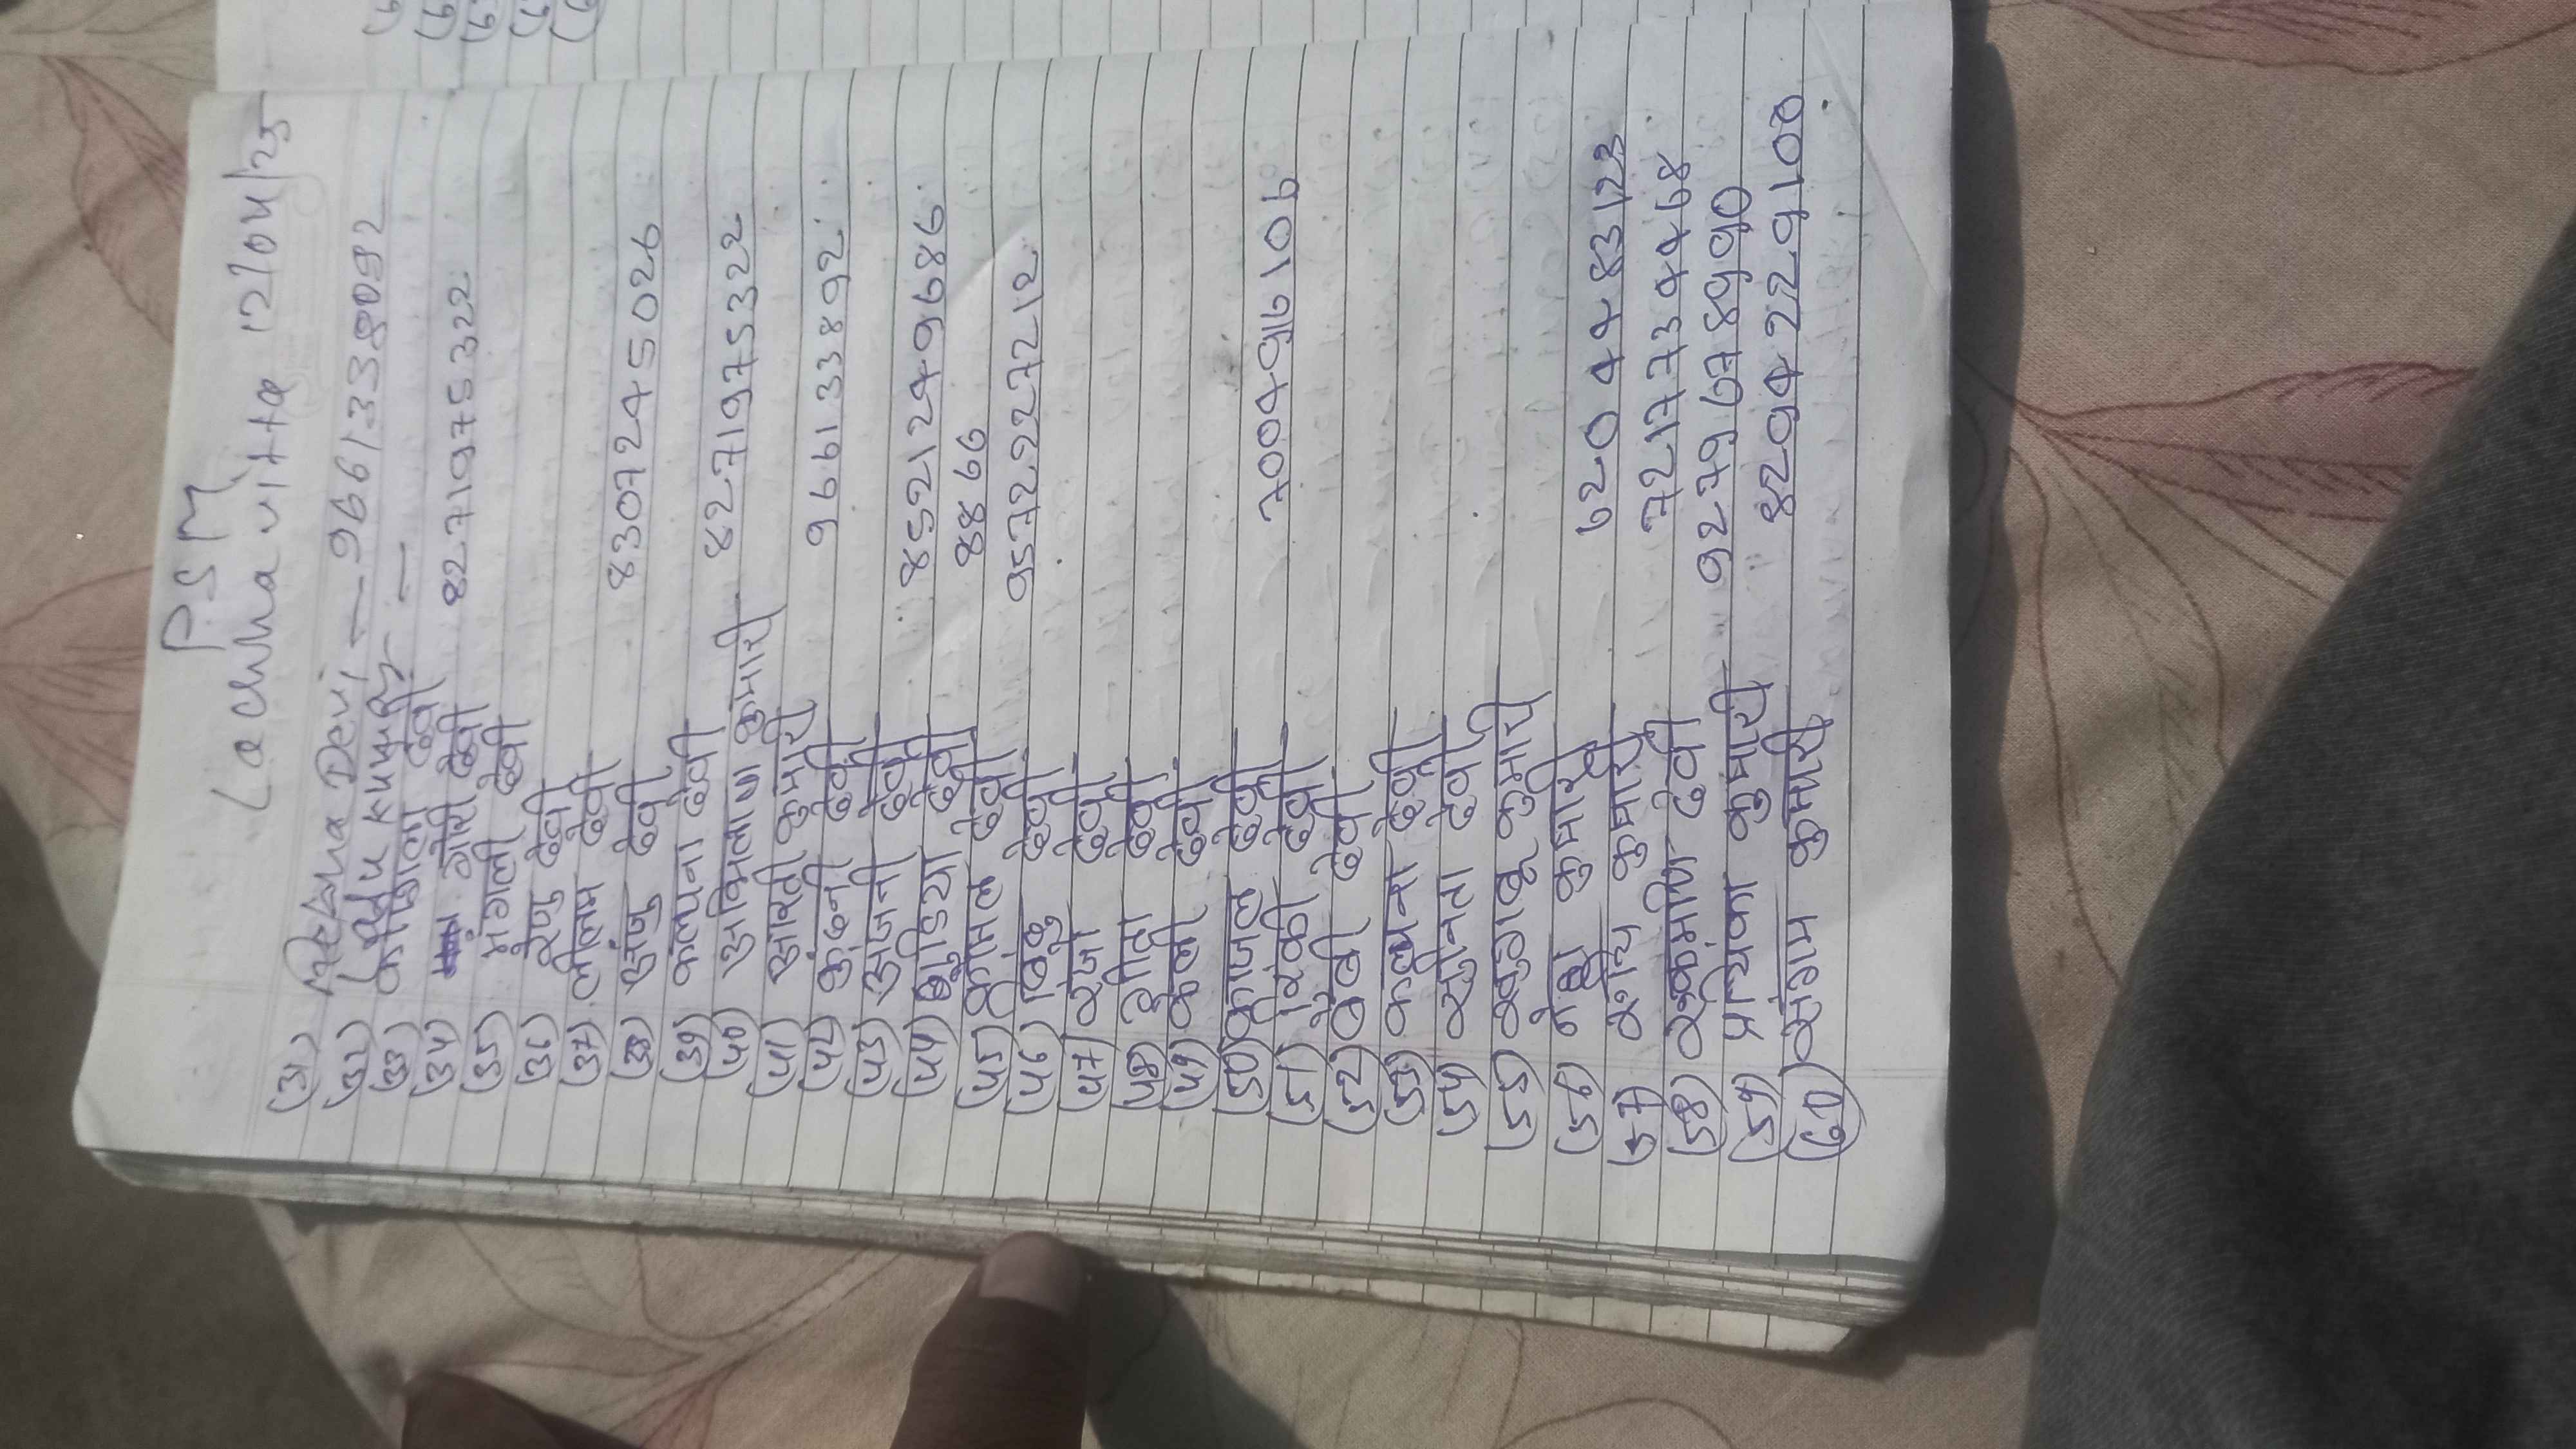 P.S.M
Lachhavitta 12/04/25
(31) Rekha Devi — 9661338092
(32) Indu Kumari —
(33) कौशल्या देवी
(34) गौरी देवी 8271975322
(35) मंगली देवी
(36) रेणु देवी
(37) नीलम देवी 8307245026
(38) अंजु देवी
(39) कल्पना देवी 8271975322
(40) अभिलाषा कुमारी
(41) आरती कुमारी 9661338092
(42) कुंदनी देवी
(43) अंजनी देवी 8521249686
(44) गुड़िया देवी 8866
(45) कोमल देवी 9572227212
(46) बिंदु देवी
(47) रंजो देवी
(48) गीता देवी
(49) देवी
(50) काजल देवी 7004916106
(51) पिंकी देवी
(52) बेबी देवी
(53) कल्पना देवी
(54) सुनिता देवी
(55) खुशबू कुमारी
(56) नेहा कुमारी 6204483123
(57) कुमारी 7217739468
(58) रुकमणि देवी 9279678990
(59) प्रियंका कुमारी 8294229100
(60) संगम कुमारी